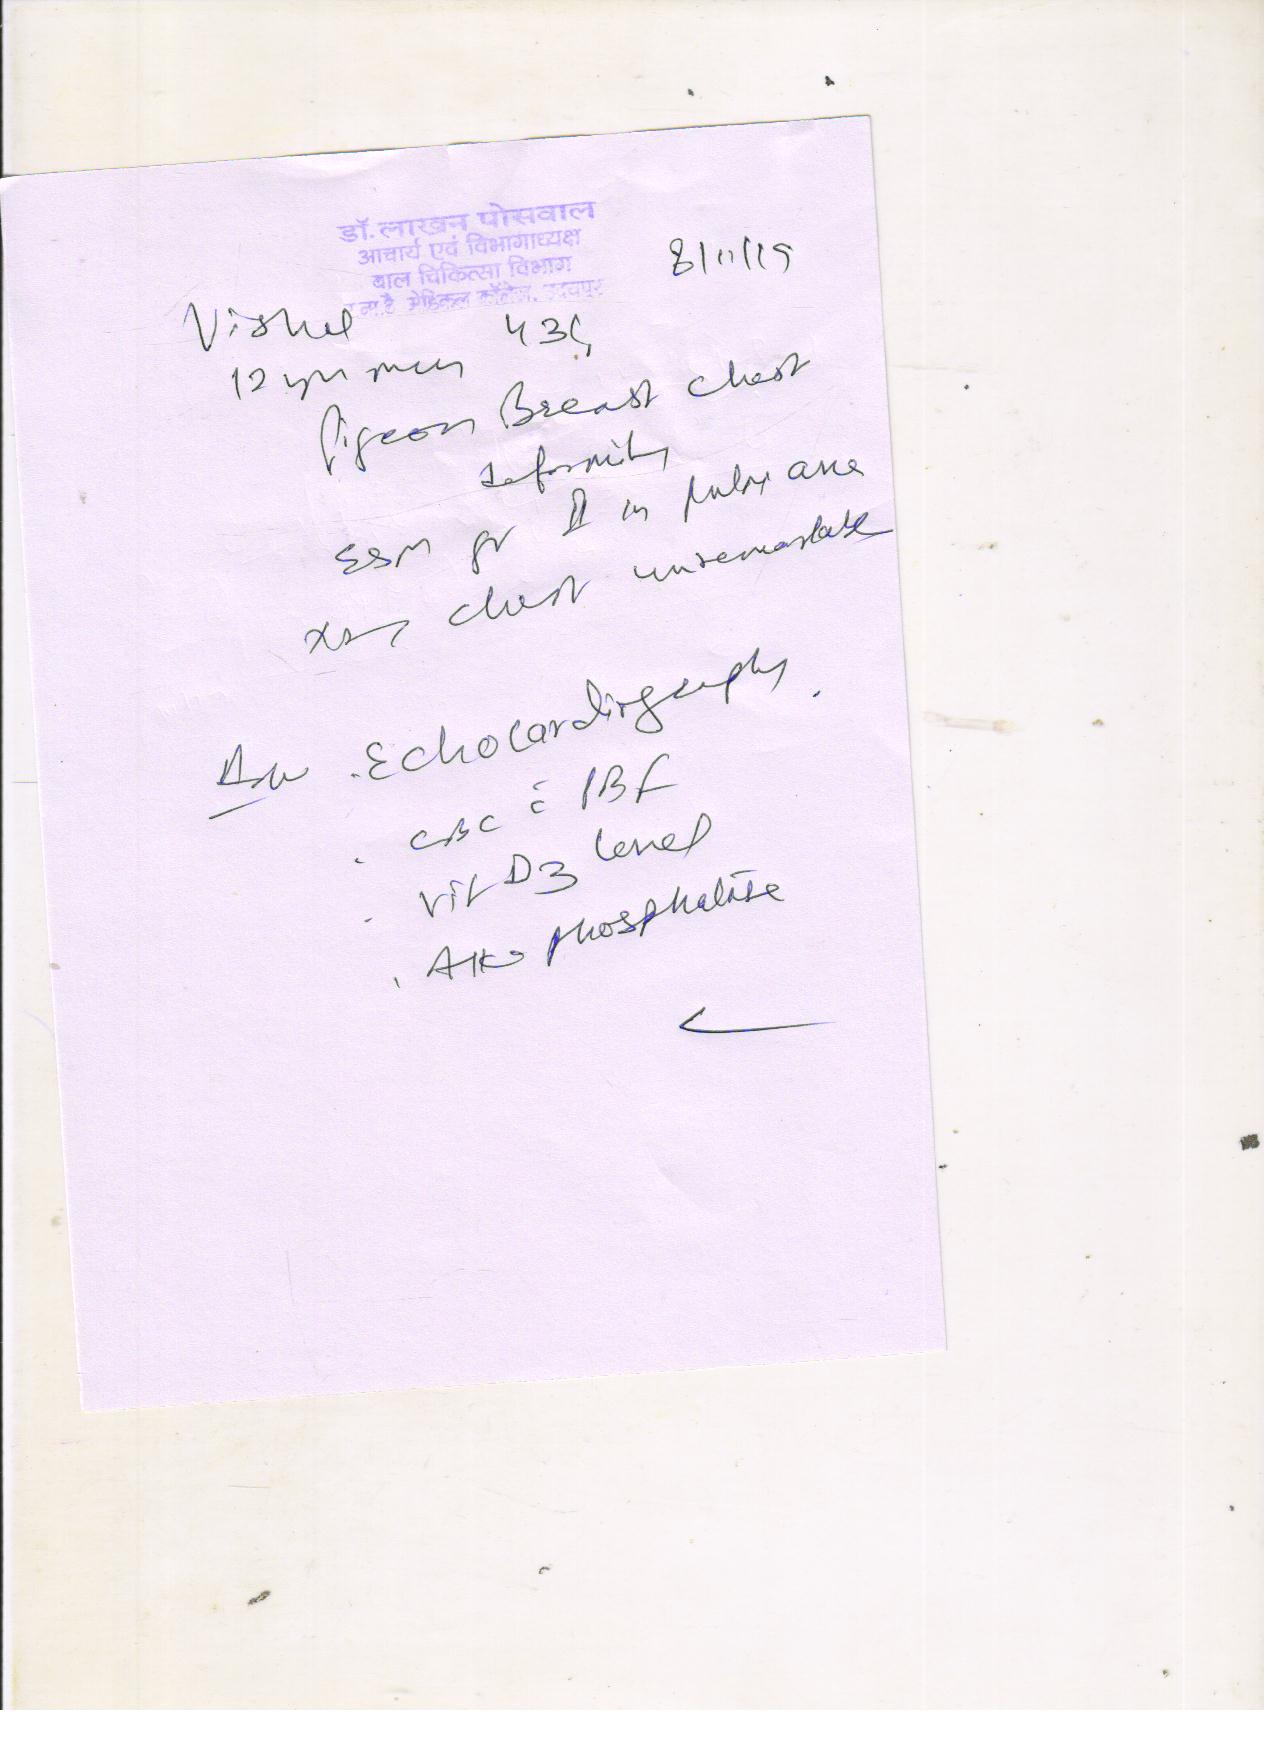 डॉ. लाखन पोसवाल
आचार्य एवं विभागाध्यक्ष
बाल चिकित्सा विभाग
मेडिकल कॉलेज, उदयपुर
8/11/19
Vishal
12 yr
Pigeon Breast chest
deformity
ESM gr II in pulm area
Xray chest unremarkable
Adv . Echocardiography
. CBC c̄ PBF
. Vit D3 level
. Alk phosphatase